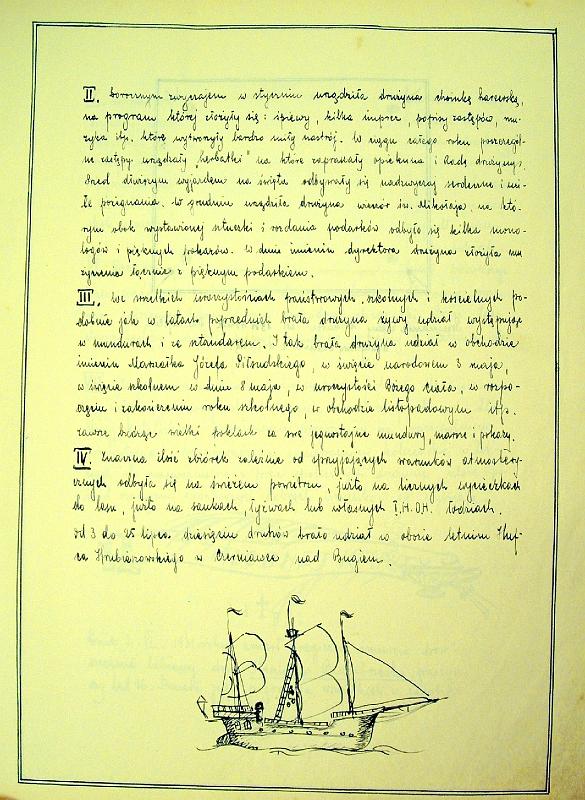 II. Dorocznym zwyczajem w styczniu urządziła drużyna choinkę harcerską,
na program której złożyły się: śpiewy, kilka imprez, popisy zastępów, mu-
zyka itp. które wytworzyły bardzo miły nastrój. W ciągu całego roku poszczegól-
ne zastępy urządzały herbatki na które zapraszały opiekuna i Radę drużyny.
Przed dłuższym wyjazdem na święta odbywały się nadzwyczaj serdeczne i mi-
łe pożegnania. W grudniu urządziła drużyna wieczór św. Mikołaja, na któ-
rym obok wystawionej sztuczki i rozdania podarków odbyło się kilka mono-
logów i pięknych pokazów. W dniu imienin dyrektora drużyna złożyła mu
życzenia łącznie z pięknym podarkiem.
III. We wszelkich uroczystościach państwowych, szkolnych i kościelnych po-
dobnie jak w latach poprzednich brała drużyna żywy udział występując
w mundurach i ze sztandarem. I tak brała drużyna udział w obchodzie
imienin Marszałka Józefa Piłsudskiego, w święcie narodowem 3 maja,
w święcie szkolnem w dniu 8 maja, w uroczystości Bożego Ciała, w rozpo-
częciu i zakończeniu roku szkolnego, w obchodzie listopadowym itp.
zawsze budząc wielki poklask za swe jednostajne mundury, marsze i pokazy.
IV. Znaczna ilość zbiórek zależnie od sprzyjających warunków atmosfery-
cznych odbyła się na świeżem powietrzu, już to na licznych wycieczkach
do lasu, już to na saukach, łyżwach lub własnych łodziach.
od 3 do 25 lipca dziesięciu druhów brało udział w obozie letnim Huf-
ca Hrubieszowskiego w Czerniawce nad Bugiem.